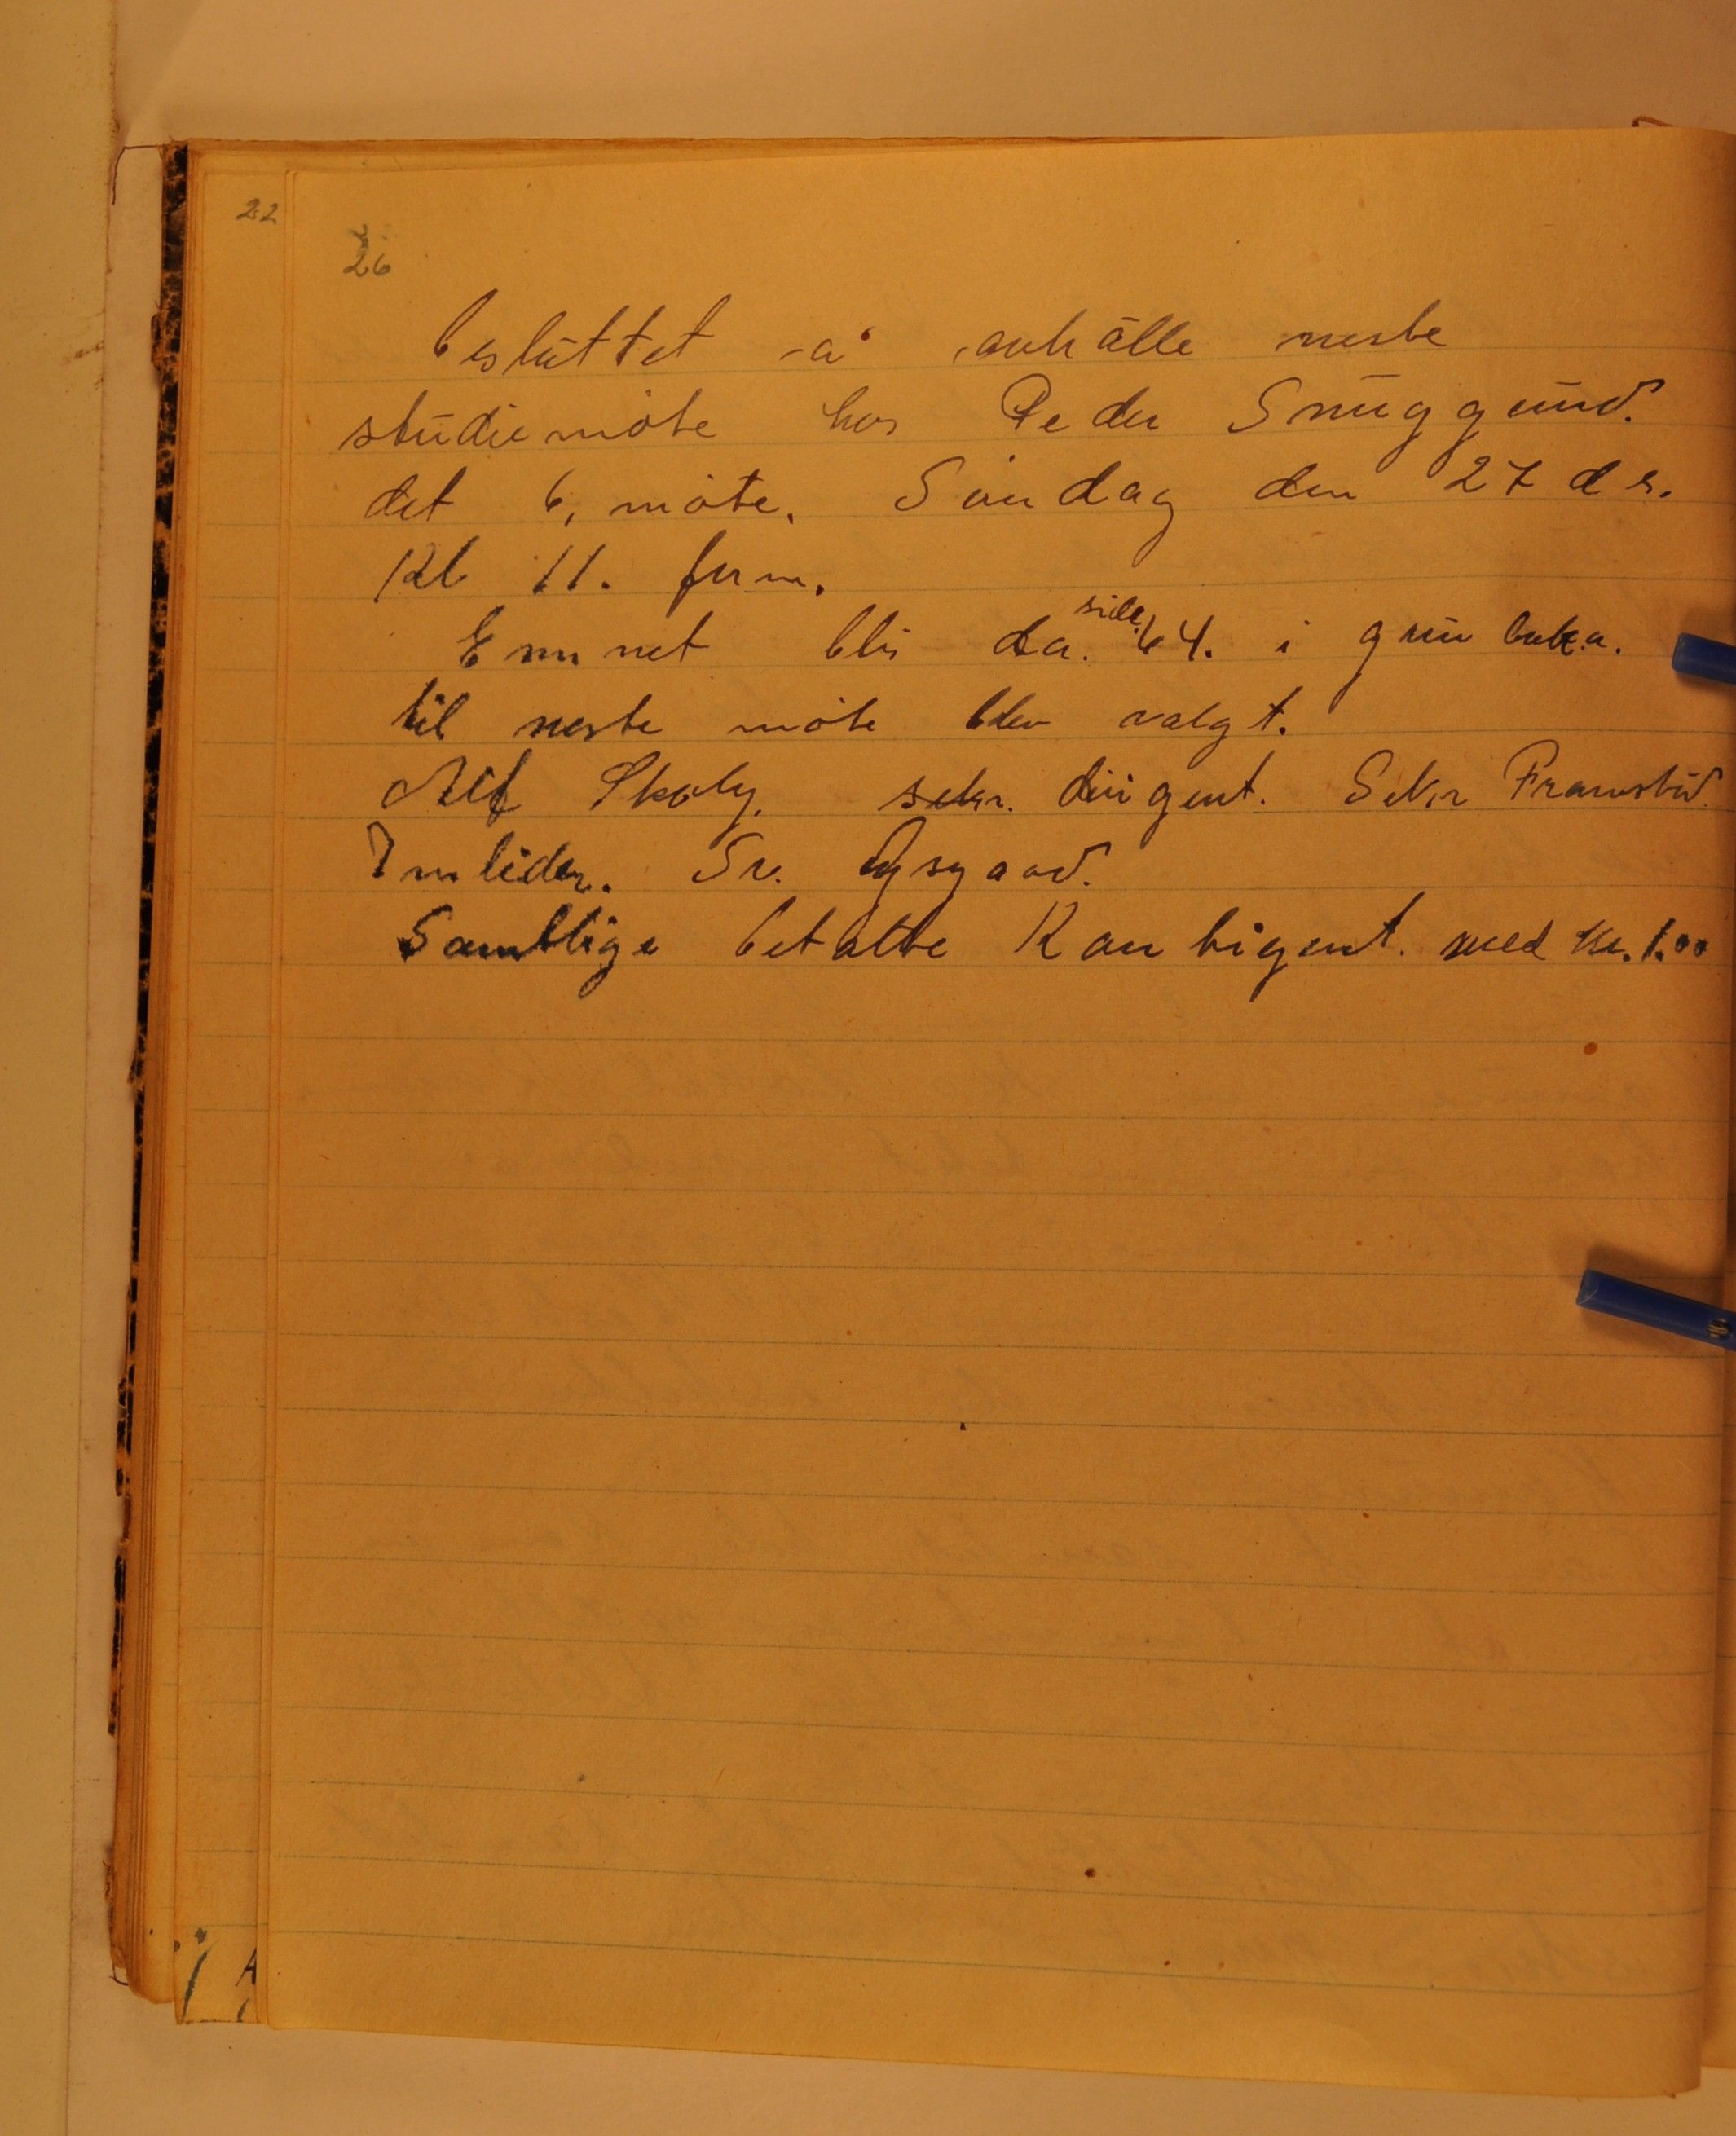 22
26
besluttet å avhålle neste
studiemöte hos Peder Snuggerud.
det 6, möte. Söndag den 27 ds.
Kl 11. form.
Emnet blir da. side 64. i grunboka.
til neste möte blev valgt.
Alf Skoly. sekr. dirigent. Sekr Framstad.
Inleder. Sv. Øysgaard.
Samtlige betalte Kontigent. med kr. 1.00